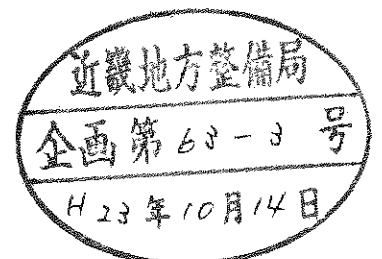 近畿地方整備局
企画第63-3号
H23年10月14日